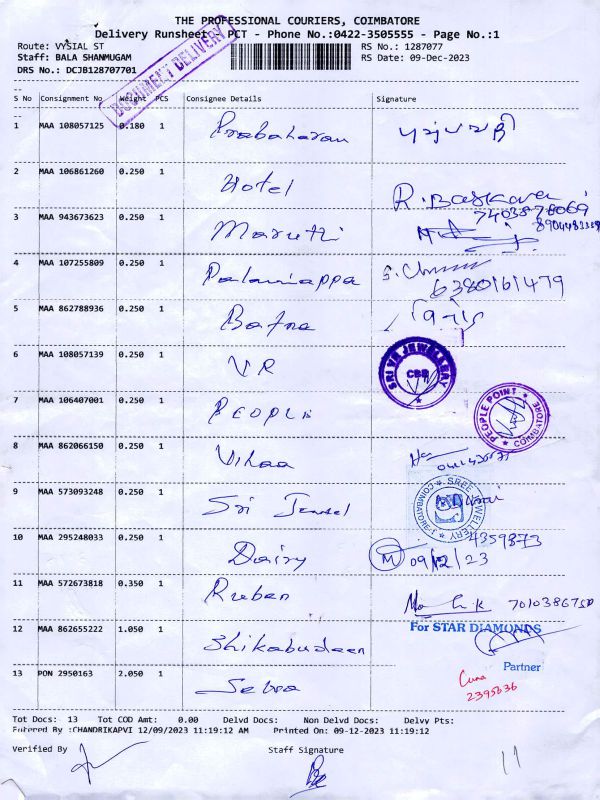 THE PROFESSIONAL COURIERS, COIMBATORE
Delivery Runsheet - PCT - Phone No.:0422-3505555 - Page No.:1
Route: VYSIAL ST RS No.: 1287077
Staff: BALA SHANMUGAM RS Date: 09-Dec-2023
DRS No.: DCJB128707701
DOCUMENT DELIVERY
S No Consignment No Weight PCS Consignee Details Signature
1 MAA 108057125 0.180 1 Prabaharan
2 MAA 106861260 0.250 1 Hotel R. Baskaran
7403878069
3 MAA 943673623 0.250 1 Maruthi
4 MAA 107255809 0.250 1 Palaniappa
6380161479
5 MAA 862788936 0.250 1 Bafna
6 MAA 108057139 0.250 1 VR SRI VR JEWELLERY CBE
7 MAA 106407001 0.250 1 PEOPLE PEOPLE POINT COIMBATORE
8 MAA 862066150 0.250 1
9 MAA 573093248 0.250 1 Sri Jewel SREE JEWELLERY COIMBATORE-1
10 MAA 295248033 0.250 1 Dairy 4359873
M 09/12/23
11 MAA 572673818 0.350 1 Ruben
12 MAA 862655222 1.050 1 Shikabudeen For STAR DIAMONDS
Partner
13 PON 2950163 2.050 1 Selva
2395636
Tot Docs: 13 Tot COD Amt: 0.00 Delvd Docs: Non Delvd Docs: Delvy Pts:
Entered By :CHANDRIKAPVI 12/09/2023 11:19:12 AM Printed On: 09-12-2023 11:19:12
Verified By Staff Signature